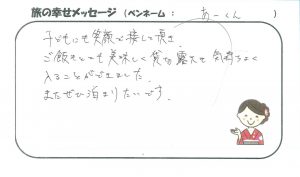 旅の幸せメッセージ (ペンネーム： あーくん )
子どもにも笑顔で接して頂き、
ご飯もとても美味しく貸切露天も気持ちよく
入ることができました。
またぜひ泊まりたいです。